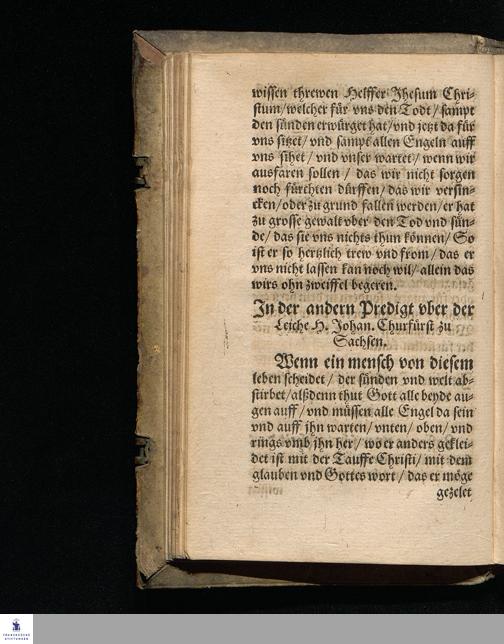 wissen threwen Helffer Jhesum Chri-
stum/welcher für vns den Todt/ sampt
den sünden erwürget hat/vnd jetzt da für
vns sitzet/ vnd sampt allen Engeln auff
vns sihet/ vnd vnser wartet/ wenn wir
ausfaren sollen / das wir nicht sorgen
noch fürchten dürffen/ das wir versin-
cken/oder zu grund fallen werden/er hat
zu grosse gewalt vber den Tod vnd sün-
de/ das sie vns nichts thun können/ So
ist er so hertzlich trew vnd from/ das er
vns nicht lassen kan noch wil/ allein das
wirs ohn zweiffel begeren.
In der andern Predigt vber der
Leiche H. Johan. Churfürst zu
Sachsen.
Wenn ein mensch von diesem
leben scheidet/ der sünden vnd welt ab-
stirbet/alßdenn thut Gott alle beyde au-
gen auff/ vnd müssen alle Engel da sein
vnd auff jhn warten/ vnten/ oben/ vnd
rings vmb jhn her/ wo er anders geklei-
det ist mit der Tauffe Christi/ mit dem
glauben vnd Gottes wort/ das er möge
gezelet
FRANCKESCHE
STIFTUNGEN